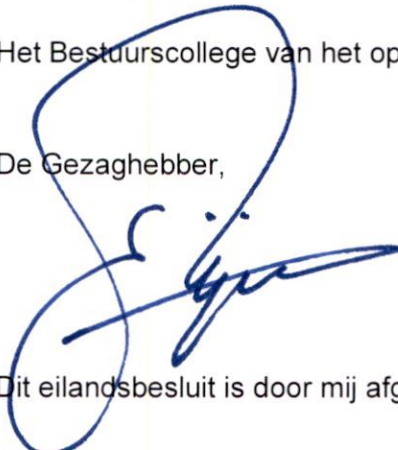 Het Bestuurscollege van het op
De Gezaghebber,
Dit eilandsbesluit is door mij afg